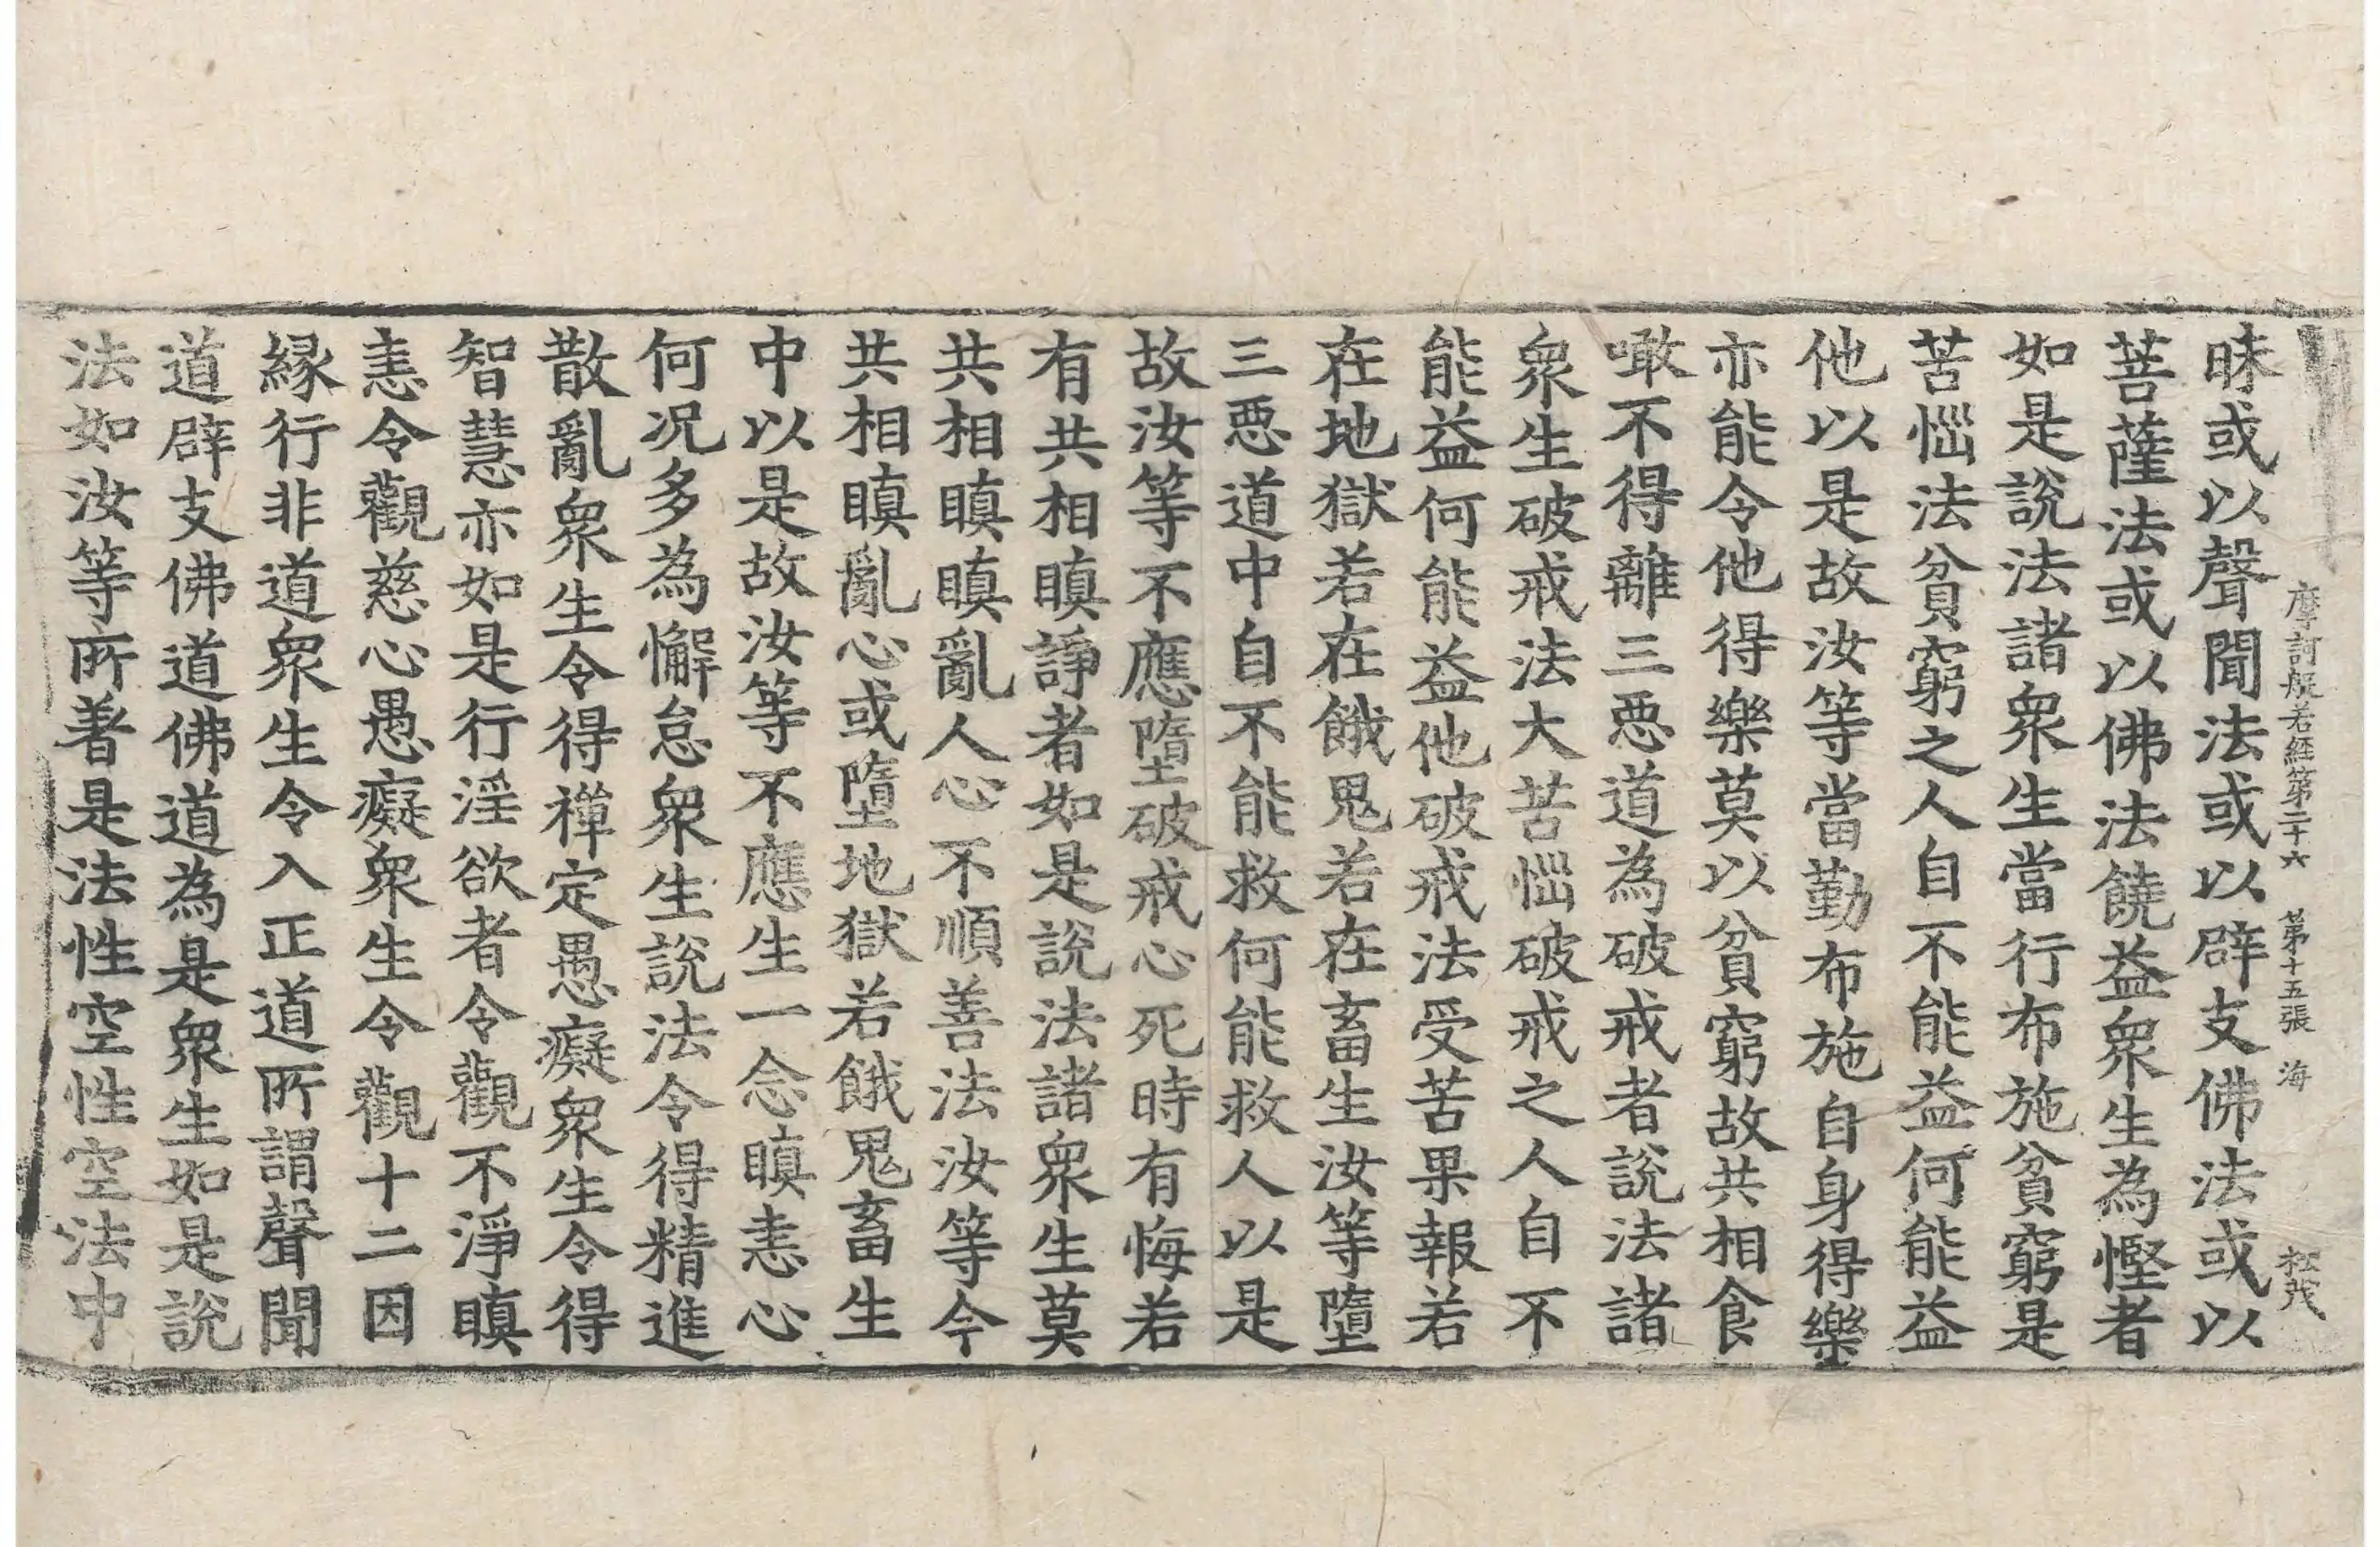 摩訶般若経第二十六　第十五張　海　松茂
昧或以聲聞法或以辟支佛法或以
菩薩法或以佛法饒益衆生為慳者
如是說法諸衆生當行布施貧窮是
苦惱法貧窮之人自不能益何能益
他以是故汝等當勤布施自身得樂
亦能令他得樂莫以貧窮故共相食
噉不得離三惡道為破戒者說法諸
衆生破戒法大苦惱破戒之人自不
能益何能益他破戒法受苦果報若
在地獄若在餓鬼若在畜生汝等墮
三惡道中自不能救何能救人以是
故汝等不應墮破戒心死時有悔若
有共相瞋諍者如是說法諸衆生莫
共相瞋瞋亂人心不順善法汝等今
共相瞋亂心或墮地獄若餓鬼畜生
中以是故汝等不應生一念瞋恚心
何況多為懈怠衆生說法令得精進
散亂衆生令得禪定愚癡衆生令得
智慧亦如是行淫欲者令觀不淨瞋
恚令觀慈心愚癡衆生令觀十二因
緣行非道衆生令入正道所謂聲聞
道辟支佛道佛道為是衆生如是說
法如汝等所著是法性空性空法中